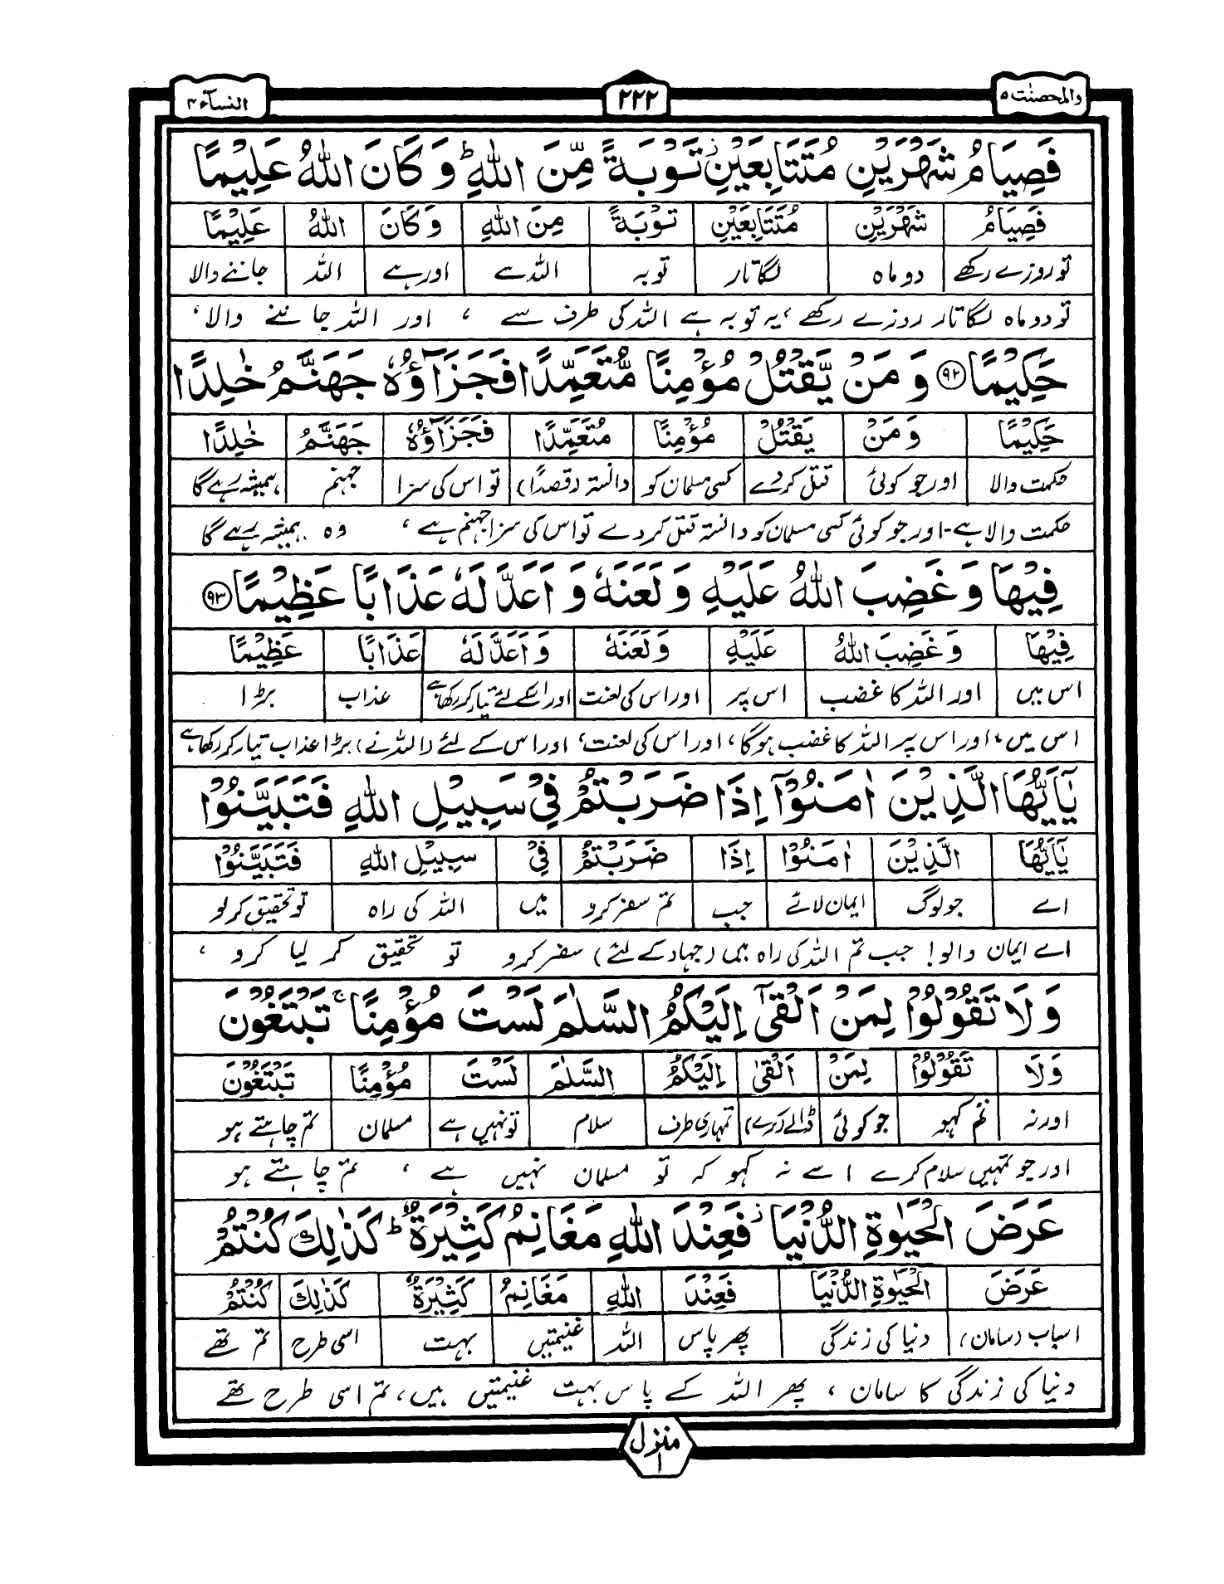 والمحصنت ۵ ۲۲۲ النسآء ۴
فَصِيَامُ شَهْرَيْنِ مُتَتَابِعَيْنِ ز تَوْبَةً مِّنَ اللّٰهِ ط وَ كَانَ اللّٰهُ عَلِيْمًا
فَصِيَامُ شَهْرَيْنِ مُتَتَابِعَيْنِ تَوْبَةً مِنَ اللّٰهِ وَ كَانَ اللّٰهُ عَلِيْمًا
تو روزے رکھے دو ماہ لگاتار توبہ اللہ سے اور ہے اللہ جاننے والا
تو دو ماہ لگاتار روزے رکھے ، یہ توبہ ہے اللہ کی طرف سے ، اور اللہ جاننے والا ،
حَكِيْمًا ۹۲ وَ مَنْ يَّقْتُلْ مُؤْمِنًا مُّتَعَمِّدًا فَجَزَآؤُهٗ جَهَنَّمُ خٰلِدًا
حَكِيْمًا وَ مَنْ يَقْتُلْ مُؤْمِنًا مُتَعَمِّدًا فَجَزَآؤُهٗ جَهَنَّمُ خٰلِدًا
حکمت والا اور جو کوئی قتل کردے کسی مسلمان کو دانستہ (قصداً) تو اس کی سزا جہنم ہمیشہ رہے گا
حکمت والا ہے۔ اور جو کوئی کسی مسلمان کو دانستہ قتل کر دے تو اس کی سزا جہنم ہے ، وہ ہمیشہ رہے گا
فِيْهَا وَ غَضِبَ اللّٰهُ عَلَيْهِ وَ لَعَنَهٗ وَ اَعَدَّ لَهٗ عَذَابًا عَظِيْمًا ۹۳
فِيْهَا وَ غَضِبَ اللّٰهُ عَلَيْهِ وَ لَعَنَهٗ وَ اَعَدَّ لَهٗ عَذَابًا عَظِيْمًا
اس میں اور اللہ کا غضب اس پر اور اس کی لعنت اور اسکے لئے تیار کر رکھا ہے عذاب بڑا
اس میں ، اور اس پر اللہ کا غضب ہوگا ، اور اس کی لعنت ، اور اس کے لئے (اللہ نے) بڑا عذاب تیار کر رکھا ہے
يٰٓاَيُّهَا الَّذِيْنَ اٰمَنُوْٓا اِذَا ضَرَبْتُمْ فِيْ سَبِيْلِ اللّٰهِ فَتَبَيَّنُوْا
يٰٓاَيُّهَا الَّذِيْنَ اٰمَنُوْٓا اِذَا ضَرَبْتُمْ فِيْ سَبِيْلِ اللّٰهِ فَتَبَيَّنُوْا
اے جو لوگ ایمان لائے جب تم سفر کرو میں اللہ کی راہ تو تحقیق کر لو
اے ایمان والو! جب تم اللہ کی راہ میں (جہاد کے لئے) سفر کرو تو تحقیق کر لیا کرو ،
وَ لَا تَقُوْلُوْا لِمَنْ اَلْقٰٓى اِلَيْكُمُ السَّلٰمَ لَسْتَ مُؤْمِنًا ج تَبْتَغُوْنَ
وَ لَا تَقُوْلُوْا لِمَنْ اَلْقٰى اِلَيْكُمُ السَّلٰمَ لَسْتَ مُؤْمِنًا تَبْتَغُوْنَ
اور نہ تم کہو جو کوئی ڈالے (کرے) تمہاری طرف سلام تو نہیں ہے مسلمان تم چاہتے ہو
اور جو تمہیں سلام کرے اسے نہ کہو کہ تو مسلمان نہیں ہے ، تم چاہتے ہو
عَرَضَ الْحَيٰوةِ الدُّنْيَا ز فَعِنْدَ اللّٰهِ مَغَانِمُ كَثِيْرَةٌ ط كَذٰلِكَ كُنْتُمْ
عَرَضَ الْحَيٰوةِ الدُّنْيَا فَعِنْدَ اللّٰهِ مَغَانِمُ كَثِيْرَةٌ كَذٰلِكَ كُنْتُمْ
اسباب (سامان) دنیا کی زندگی پھر پاس اللہ غنیمتیں بہت اسی طرح تم تھے
دنیا کی زندگی کا سامان ، پھر اللہ کے پاس بہت غنیمتیں ہیں ، تم اسی طرح تھے
منزل ۱